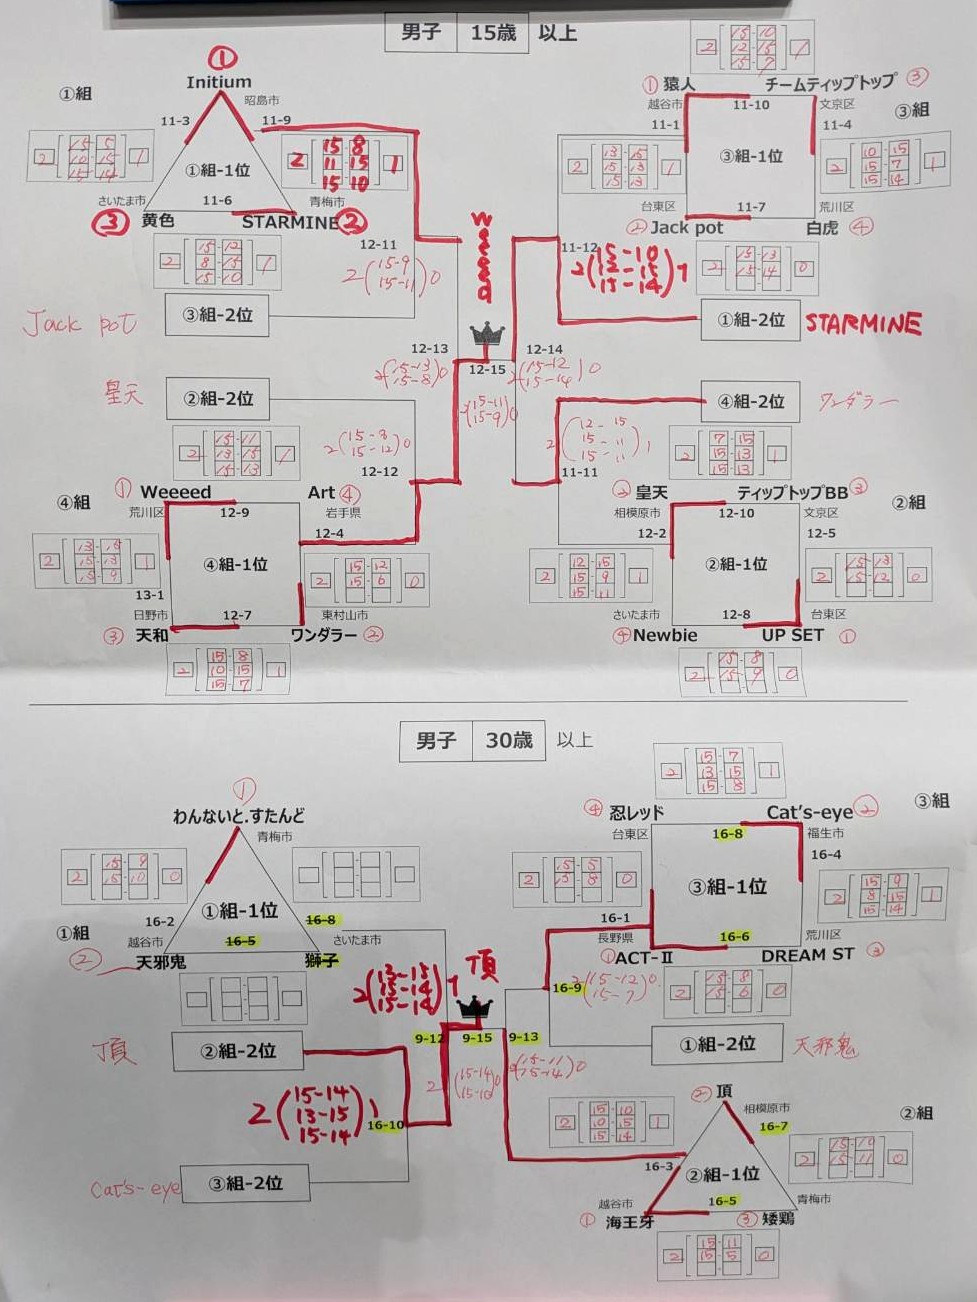 男子 15歳 以上
①
Initium
昭島市
①組
11-3
11-9
2 [15-5 10-15 15-14] 1
2 [15-8 11-15 15-10] 1
①組-1位
さいたま市
青梅市
11-6
③ 黄色
STARMINE ②
2 [15-12 8-15 15-10] 1
12-11
2 (15-9 15-11) 0
Jack pot
③組-2位
Weeeed
2 [15-10 12-15 15-7] 1
① 猿人
チームティップトップ ③
越谷市
11-10
文京区
③組
11-1
11-4
2 [13-15 15-13 15-13] 1
③組-1位
2 [10-15 15-7 15-14] 1
台東区
11-7
荒川区
② Jack pot
白虎 ④
12-12
2 [15-13 15-14] 0
11-12
2 (15-10 12-15 15-14) 1
①組-2位
STARMINE
12-13
12-15
12-14
2 (15-13 15-8) 0
2 (15-12 15-14) 0
2 (15-11 15-9) 0
皇天
②組-2位
④組-2位
ワンダラー
2 [15-11 13-15 15-13] 1
2 (15-8 15-12) 0
2 (12-15 15-11 15-11) 1
11-11
2 [7-15 15-13 15-13] 1
① Weeeed
Art ④
④組
荒川区
12-9
岩手県
12-4
2 [13-15 15-13 15-9] 1
④組-1位
2 [15-12 15-6] 0
13-1
日野市
12-7
東村山市
③ 天和
ワンダラー ②
2 [15-8 10-15 15-7] 1
② 皇天
ティップトップBB ③
②組
相模原市
12-10
文京区
12-2
12-5
2 [12-15 15-9 15-11] 1
②組-1位
2 [15-13 15-12] 0
さいたま市
12-8
台東区
④ Newbie
UP SET ①
2 [15-8 15-9] 0
男子 30歳 以上
①
わんないと.すたんど
青梅市
2 [15-9 15-10] 0
①組-1位
①組
16-2
16-8
越谷市
16-5
さいたま市
② 天邪鬼
獅子
頂
②組-2位
2 (13-15 15-14 15-14) 1
頂
9-12
9-15
9-13
2 (15-14 15-10) 0
2 (15-11 15-14) 0
2 (15-14 13-15 15-14) 1
16-10
Cat's-eye
③組-2位
2 [15-7 13-15 15-8] 1
④ 忍レッド
Cat's-eye ②
③組
台東区
16-8
福生市
16-4
2 [15-5 15-8] 0
③組-1位
2 [15-9 8-15 15-14] 1
16-1
長野県
16-6
荒川区
① ACT-Ⅱ
DREAM ST ③
16-9
2 (15-12 15-7) 0
2 [15-8 15-6] 0
①組-2位
天邪鬼
② 頂
相模原市
②組
16-7
2 [15-10 10-15 15-14] 1
2 [15-10 15-11] 0
16-3
②組-1位
越谷市
16-5
青梅市
① 海王牙
③ 矮鶏
2 [15-11 15-5] 0